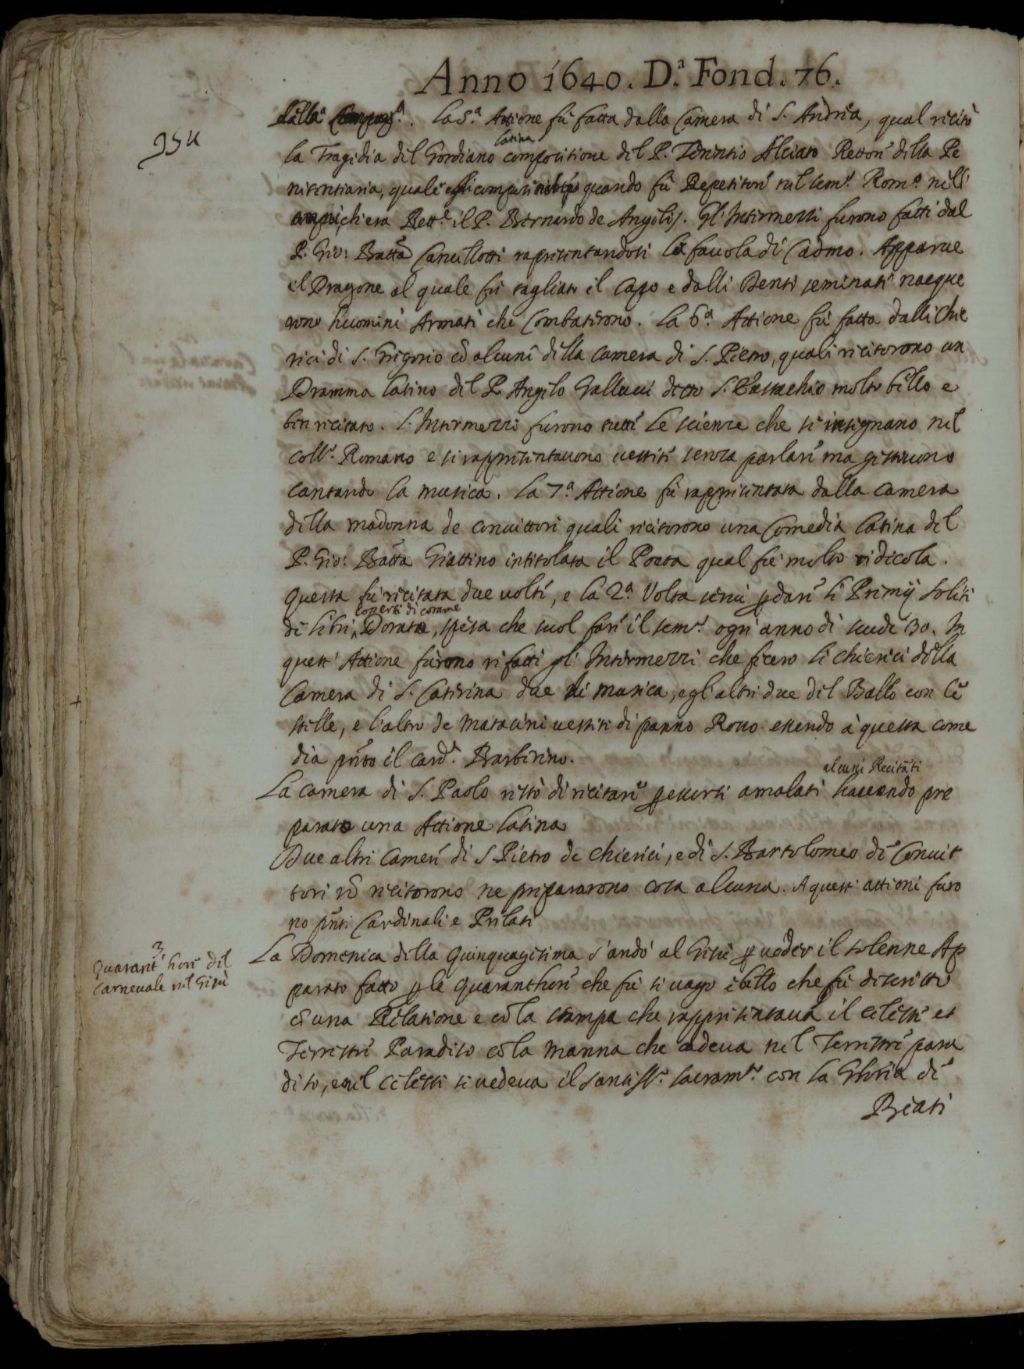 Anno 1640. D.ª Fond. 76.
della. La 5.ª Attione fù fatta dalla Camera di S. Andrea, qual recitò
latina
la Tragedia del Gordiano compositione del P. Terentio Alciato Rettore della Pe
nitentiaria, quale quando fù Repetitore nel Sem.º Rom.º nelli
il P. Bernardo de Angelis. Gl'Intermezzi furono fatti dal
P. Gio: Batta Cancellotti rapresentandosi la fauola di Cadmo. Apparue
il Dragone al quale fù tagliato il Capo e dalli Denti seminati nacque
rono huomini Armati che Combatterono. La 6.ª Attione fù fatta dalli Chie
rici di S. Gregorio cõ alcuni della Camera di S. Pietro, quali recitorono un
Dramma latino del P. Angelo Gallucci detto S. Eustachio molto bello e
ben recitato. L'Intermezzi furono tutte le scienze che si insegnano nel
Coll.º Romano e si rappresentauono uestite senza parlare ma
cantando la musica. La 7.ª Attione fù rappresentata dalla Camera
della madonna de conuittori quali recitorono una Comedia latina del
P. Gio: Batta Giattino intitolata il Poeta qual fù molto ridicola.
Questa fù recitata due uolte, e la 2.ª Volta seruì p dare li Premij soliti
coperti di corame
de libri, Dorate, spesa che suol fare il Sem.º ogni anno di scudi 30. In
questa Attione furono rifatti gl'Intermezzi che fecero li chierici della
Camera di S. Caterina due di musica, e gl'altri due del Ballo con le
stelle, e l'altro de Mataccini uestiti di panno Rosso essendo à questa come
dia pñte il Card.l Barberino.
alcuni Recitãti
La camera di S. Paolo restò di recitare p essersi amalati hauendo pre
parato una Attione latina
Due altri Camere di S Pietro de chierici, e di S. Bartolomeo de Conuit
tori nõ recitorono ne prepararono cosa alcuna. A queste attioni furo
no pñti Cardinali e Prelati
Quarant'hore del
Carneuale nel Giesù
La Domenica della Quinquagesima s'andò al Giesù p ueder il solenne Ap
parato fatto p le Quaranthore che fù sì uago e bello che fù descritto
cõ una Relatione e cõ la stampa che rappresentaua il Celeste et
Terrestre Paradiso cõ la Manna che cadeua nel Terrestre para
diso, e nel Celeste si uedeua il Santiss.º Sacram.º con la Gloria de
Beati